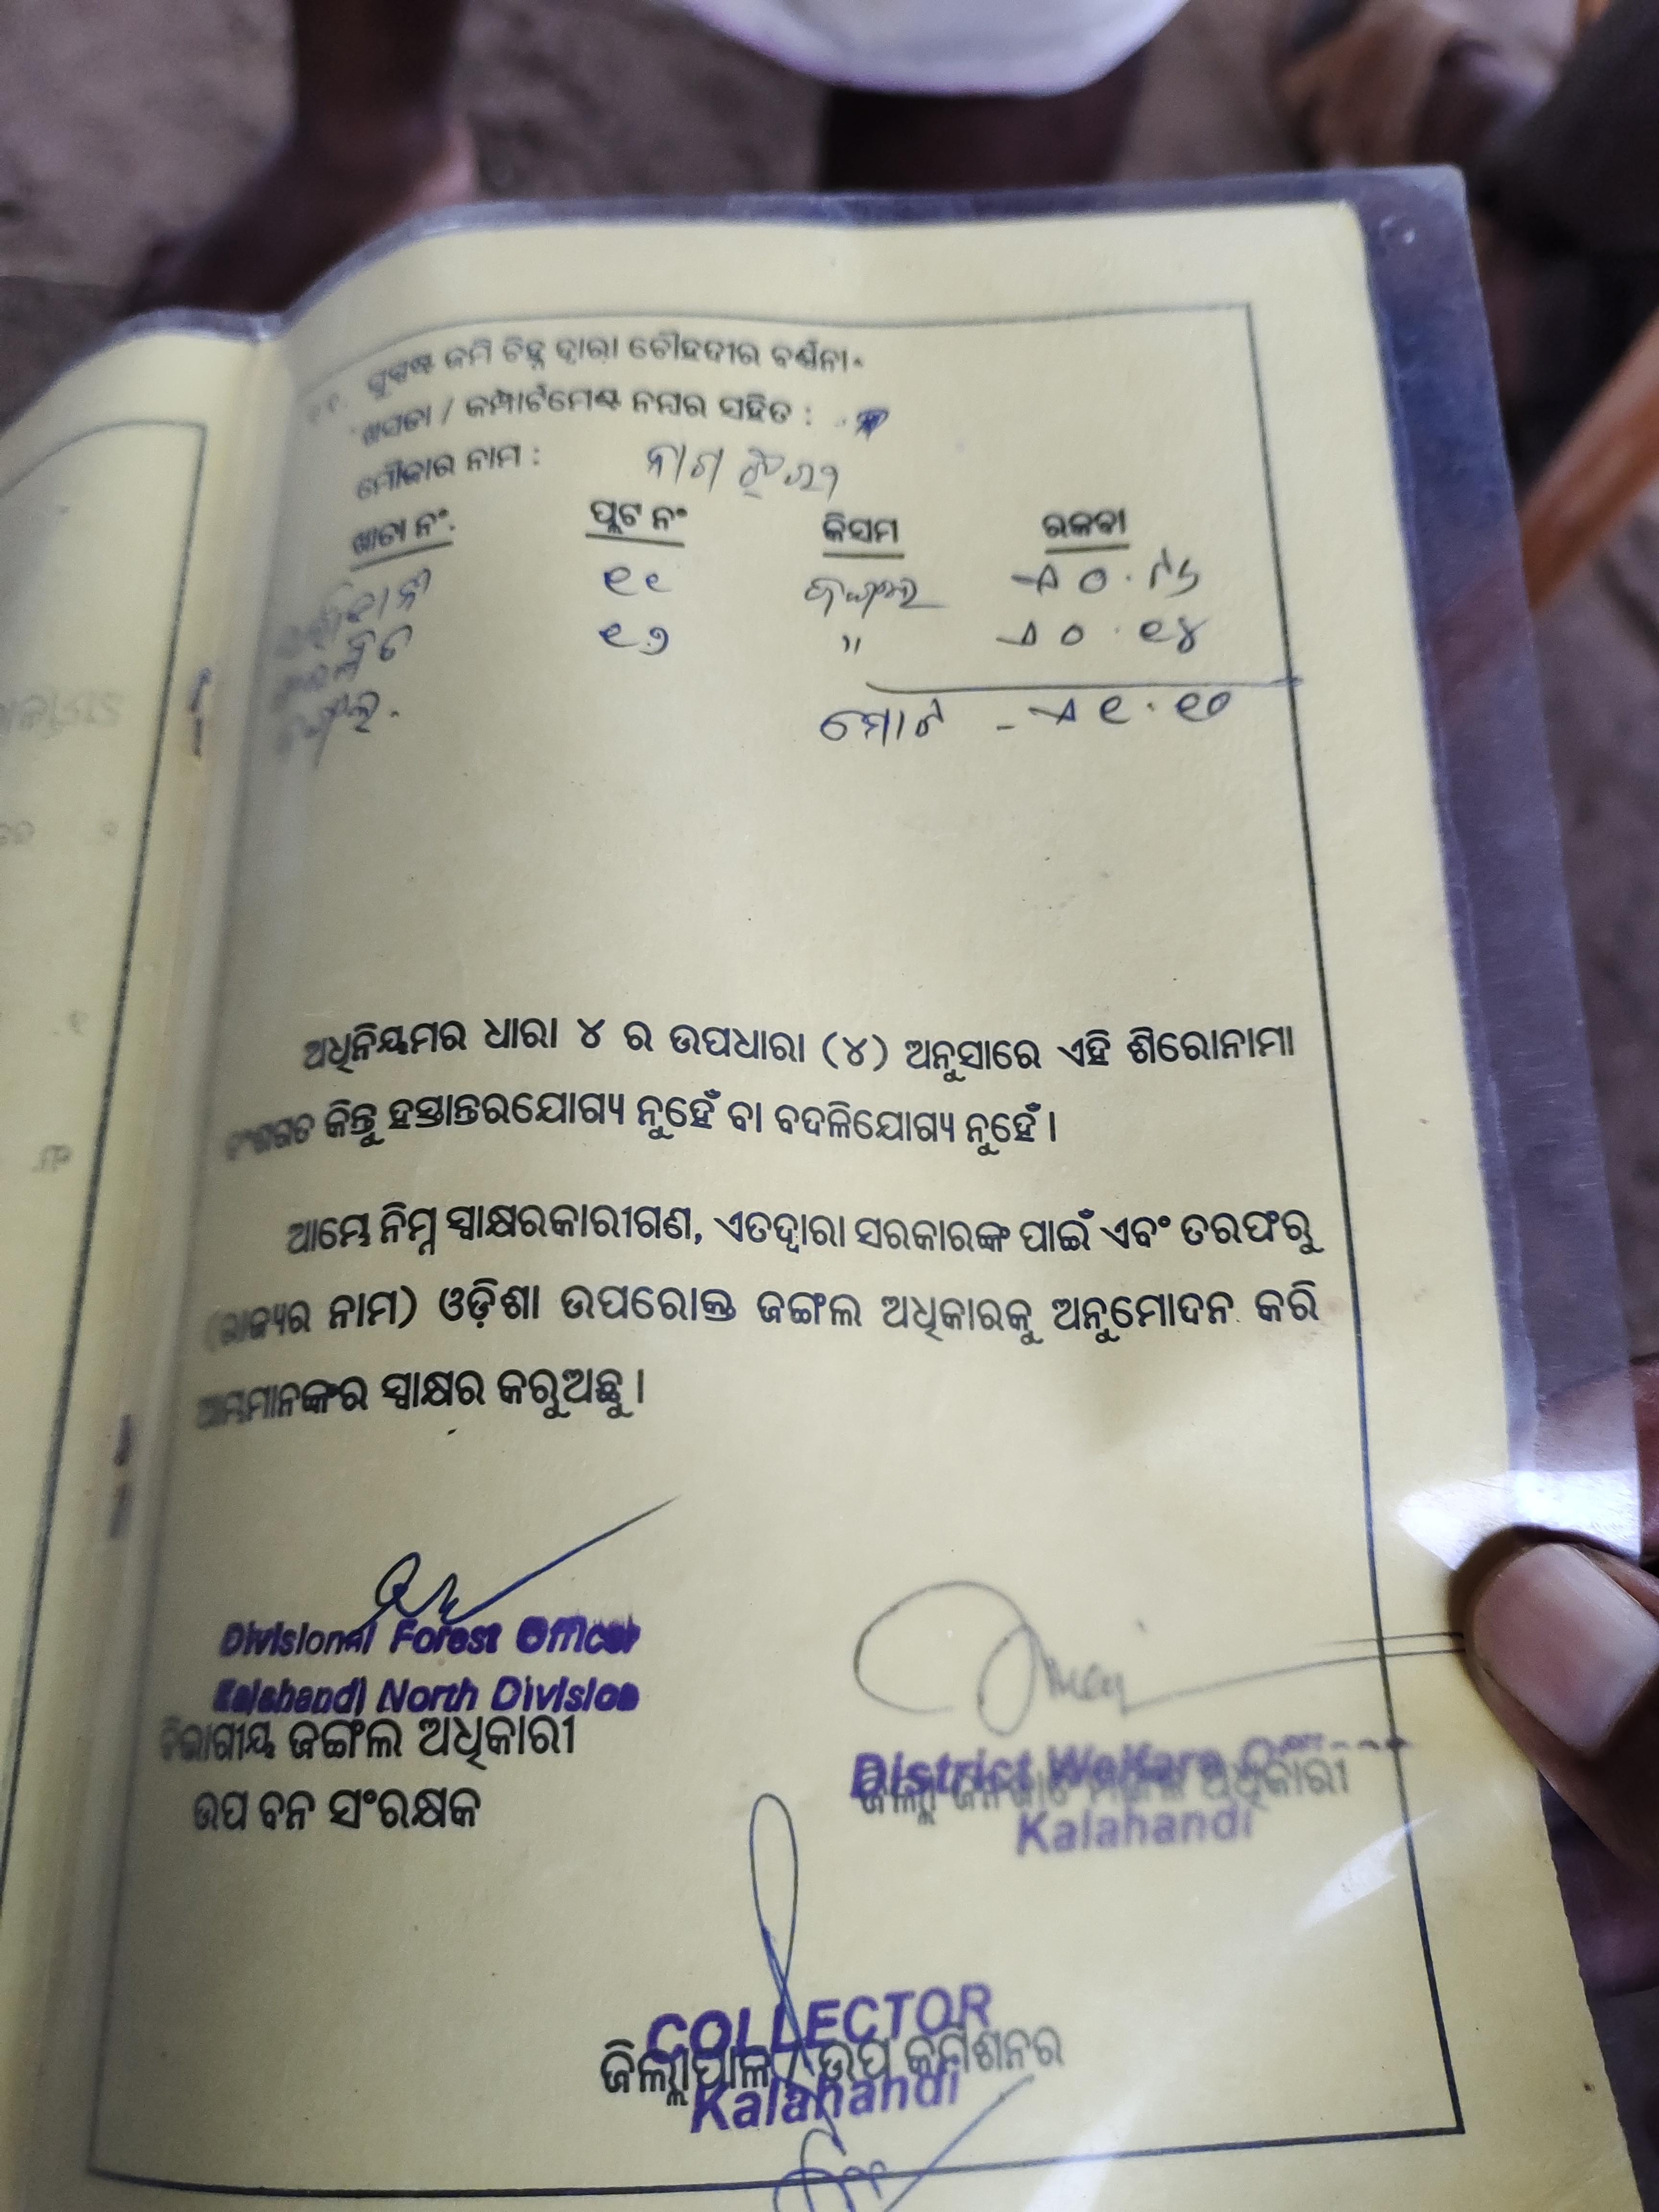 ସୁସ୍ପଷ୍ଟ ଜମି ଚିହ୍ନ ଦ୍ୱାରା ଚୌହଦୀର ବର୍ଣ୍ଣନା
ଖସଡା / କମ୍ପାର୍ଟମେଣ୍ଟ ନମ୍ବର ସହିତ :
ମୌଜାର ନାମ :
ଖାତା ନଂ. ପ୍ଲଟ ନଂ କିସମ ରକବା
୧୧ ଜଙ୍ଗଲ
୧୭ " ୦.୧୪
ମୋଟ - ୧.୧୦
ଅଧିନିୟମର ଧାରା ୪ ର ଉପଧାରା (୪) ଅନୁସାରେ ଏହି ଶିରୋନାମା
ବଂଶଗତ କିନ୍ତୁ ହସ୍ତାନ୍ତରଯୋଗ୍ୟ ନୁହେଁ ବା ବଦଳିଯୋଗ୍ୟ ନୁହେଁ ।
ଆମ୍ଭେ ନିମ୍ନ ସ୍ୱାକ୍ଷରକାରୀଗଣ, ଏତଦ୍ୱାରା ସରକାରଙ୍କ ପାଇଁ ଏବଂ ତରଫରୁ
(ରାଜ୍ୟର ନାମ) ଓଡ଼ିଶା ଉପରୋକ୍ତ ଜଙ୍ଗଲ ଅଧିକାରକୁ ଅନୁମୋଦନ କରି
ଆମ୍ଭମାନଙ୍କର ସ୍ୱାକ୍ଷର କରୁଅଛୁ ।
Divisional Forest Officer
Kalahandi North Division
ବିଭାଗୀୟ ଜଙ୍ଗଲ ଅଧିକାରୀ
ଉପ ବନ ସଂରକ୍ଷକ
District Welfare
ଜିଲ୍ଲା ଜନଜାତି ମଙ୍ଗଳ ଅଧିକାରୀ
Kalahandi
COLLECTOR
ଜିଲ୍ଲାପାଳ / ଉପ କମିଶନର
Kalahandi